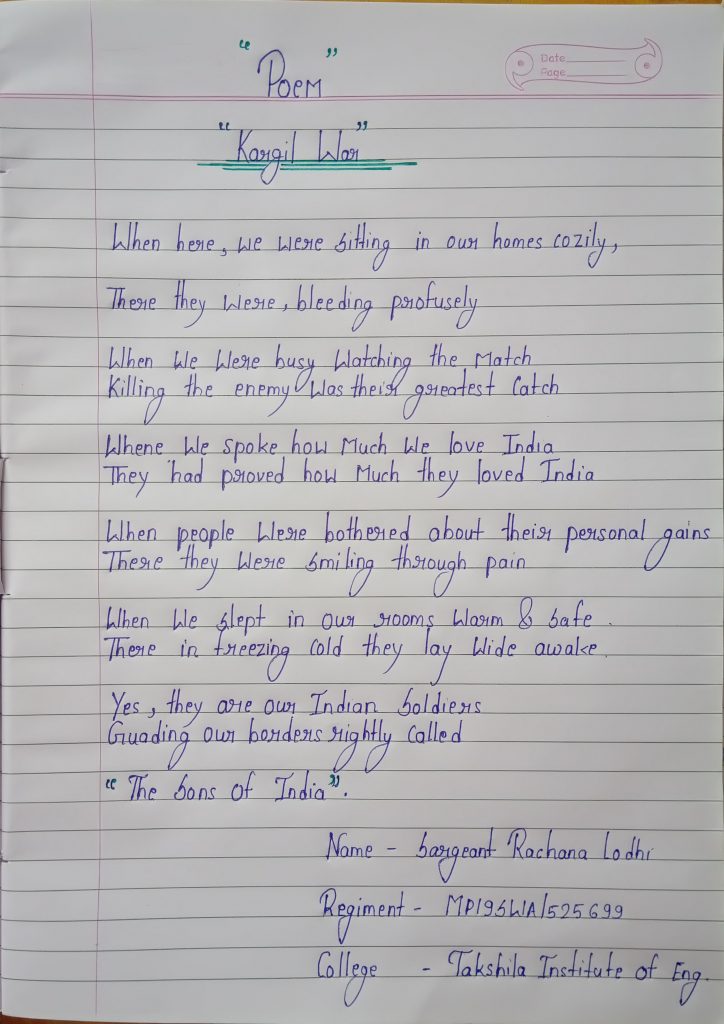 "Poem"
Date
Page
"Kargil War"
When here, we were sitting in our homes cozily,
There they were, bleeding profusely
When we were busy watching the match
Killing the enemy was their greatest catch
Whene we spoke how much we love India
They had proved how much they loved India
When people were bothered about their personal gains
There they were smiling through pain
When we slept in our rooms warm & safe.
There in freezing cold they lay wide awake.
Yes, they are our Indian soldiers
Guading our borders rightly called
"The sons of India".
Name - Sargeant Rachana Lodhi
Regiment - MP19SWA/525699
College - Takshila Institute of Eng.